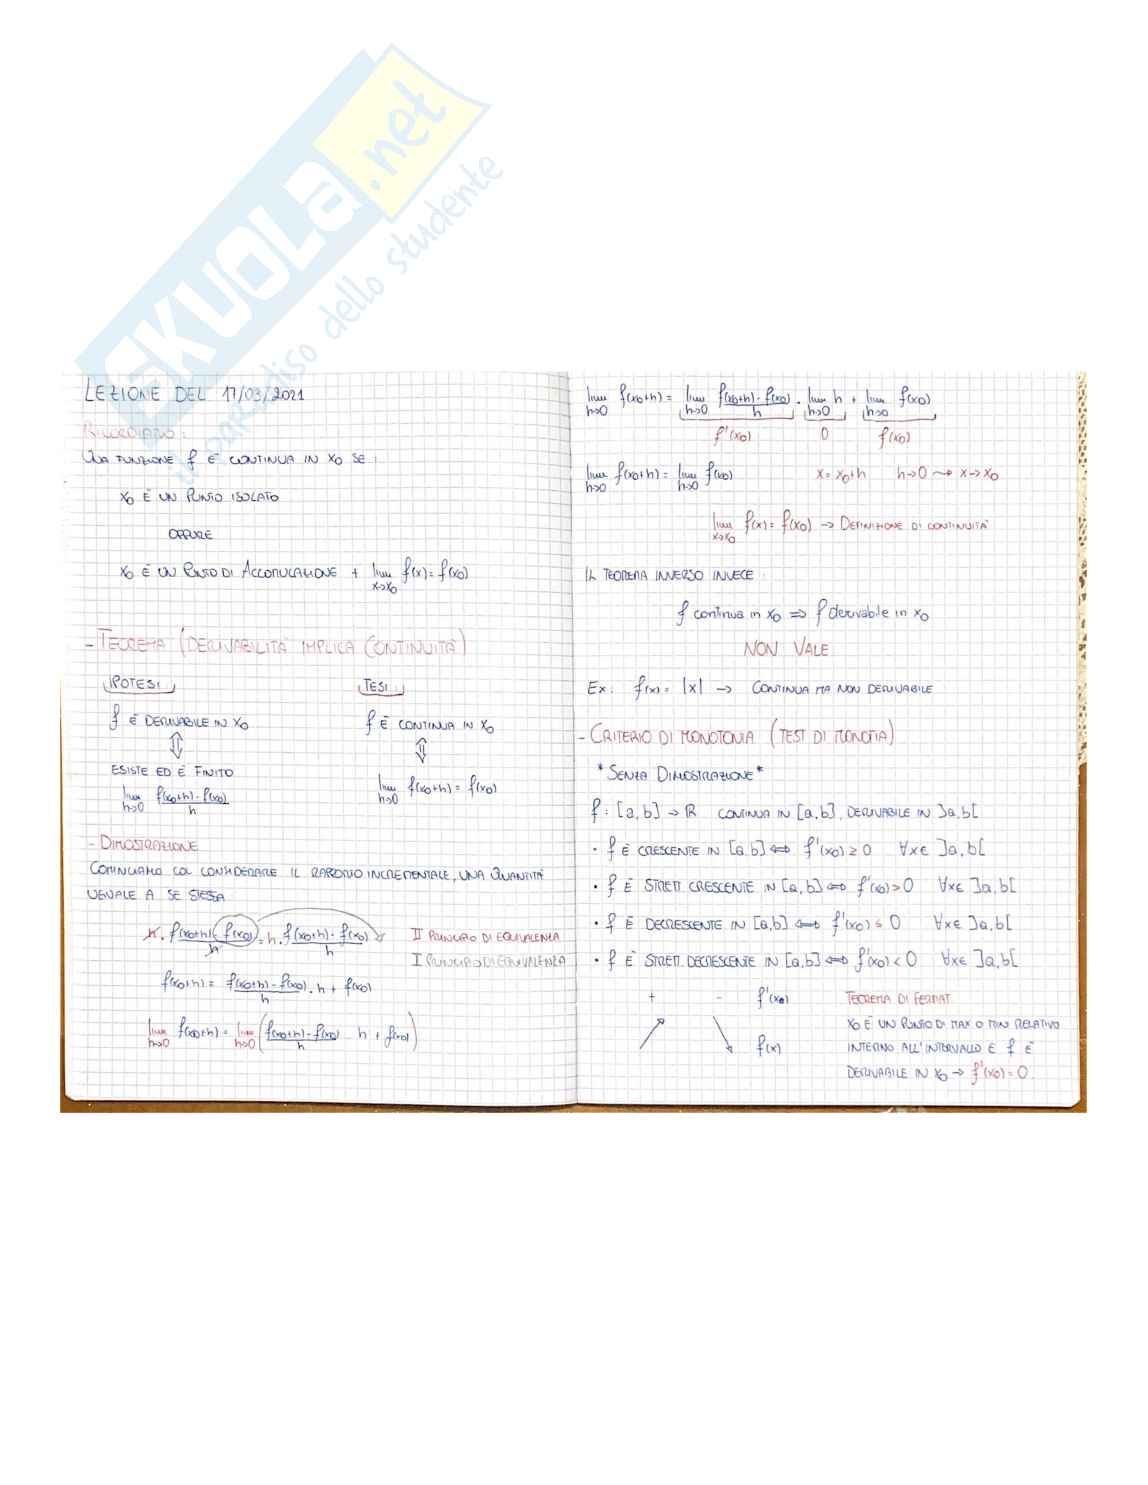 SKUOLA.net
il paradiso dello studente
LEZIONE DEL 17/03/2021
RICORDIAMO:
UNA FUNZIONE f È CONTINUA IN x₀ SE:
x₀ È UN PUNTO ISOLATO
OPPURE
x₀ È UN PUNTO DI ACCUMULAZIONE + lim x→x₀ f(x) = f(x₀)
- TEOREMA (DERIVABILITÀ IMPLICA CONTINUITÀ)
IPOTESI TESI
f È DERIVABILE IN x₀ f È CONTINUA IN x₀
⇕ ⇕
ESISTE ED È FINITO
lim h→0 (f(x₀+h) - f(x₀))/h lim h→0 f(x₀+h) = f(x₀)
- DIMOSTRAZIONE
COMINCIAMO COL CONSIDERARE IL RAPPORTO INCREMENTALE, UNA QUANTITÀ
UGUALE A SE STESSA
h · (f(x₀+h) - f(x₀))/h = h · (f(x₀+h) - f(x₀))/h II PRINCIPIO DI EQUIVALENZA
I PRINCIPIO DI EQUIVALENZA
f(x₀+h) = (f(x₀+h) - f(x₀))/h · h + f(x₀)
lim h→0 f(x₀+h) = lim h→0 ((f(x₀+h) - f(x₀))/h h + f(x₀))
lim h→0 f(x₀+h) = lim h→0 (f(x₀+h) - f(x₀))/h · lim h→0 h + lim h→0 f(x₀)
f'(x₀) 0 f(x₀)
lim h→0 f(x₀+h) = lim h→0 f(x₀) x = x₀+h h→0 ⇝ x→x₀
lim x→x₀ f(x) = f(x₀) → DEFINIZIONE DI CONTINUITÀ
IL TEOREMA INVERSO INVECE:
f continua in x₀ ⇒ f derivabile in x₀
NON VALE
Ex: f(x) = |x| → CONTINUA MA NON DERIVABILE
- CRITERIO DI MONOTONIA (TEST DI MONOTIA)
*SENZA DIMOSTRAZIONE*
f: [a,b] → ℝ CONTINUA IN [a,b], DERIVABILE IN ]a,b[
· f È CRESCENTE IN [a,b] ⇔ f'(x₀) ≥ 0 ∀x∈ ]a,b[
· f È STRETT. CRESCENTE IN [a,b] ⇔ f'(x₀) > 0 ∀x∈ ]a,b[
· f È DECRESCENTE IN [a,b] ⇔ f'(x₀) ≤ 0 ∀x∈ ]a,b[
· f È STRETT. DECRESCENTE IN [a,b] ⇔ f'(x₀) < 0 ∀x∈ ]a,b[
+ - f'(x₀) TEOREMA DI FERMAT
x₀ È UN PUNTO DI MAX O MIN RELATIVO
↗ ↘ f(x) INTERNO ALL'INTERVALLO E f È
DERIVABILE IN x₀ → f'(x₀) = 0.